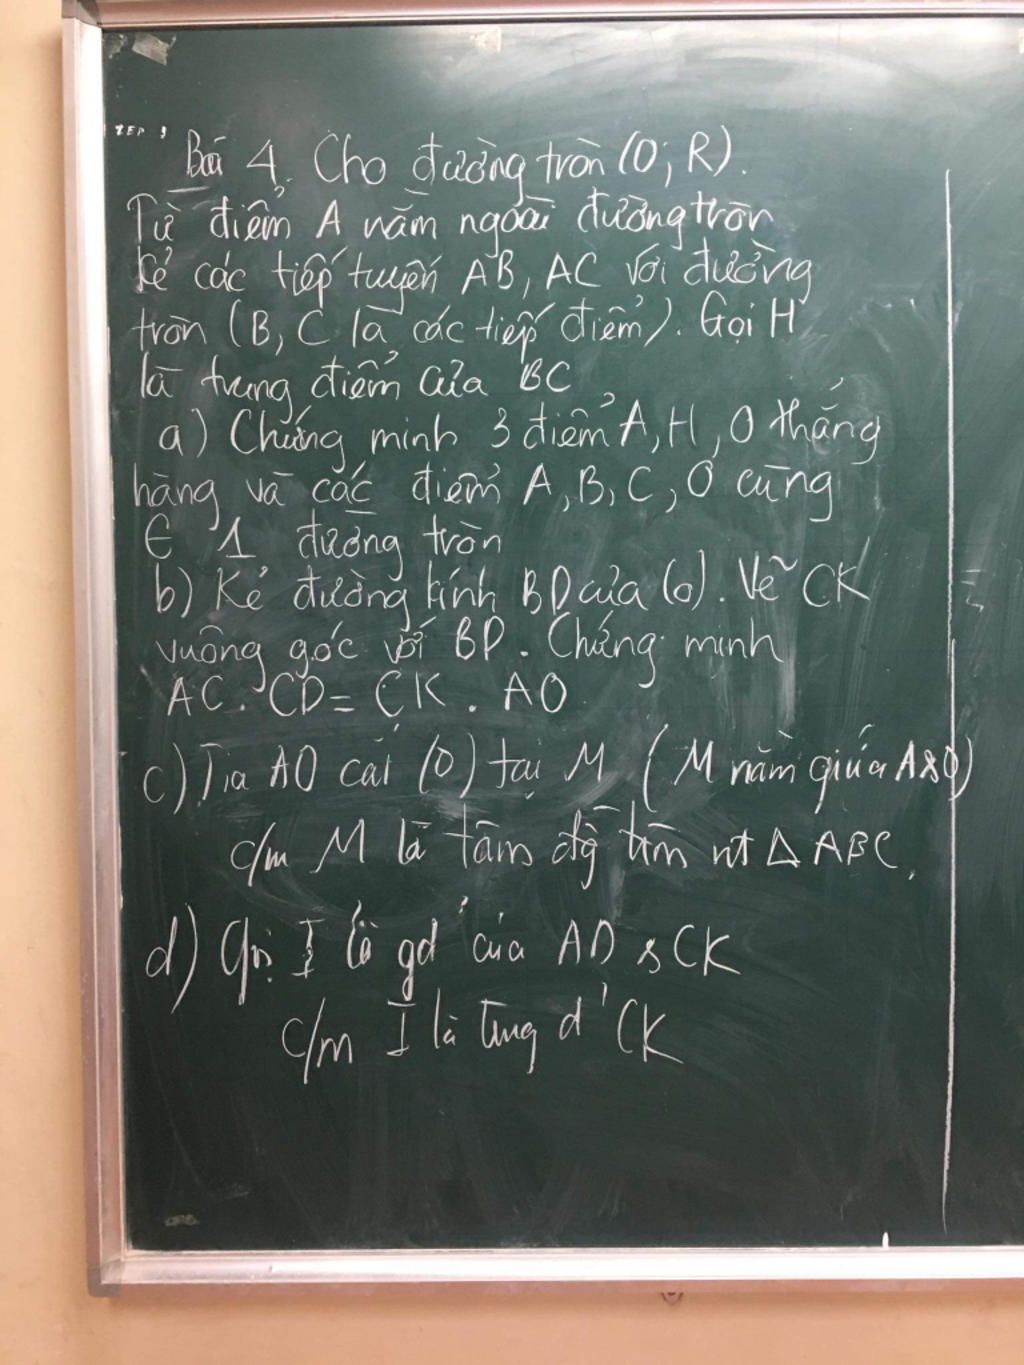 Bài 4. Cho đường tròn (O; R).
Từ điểm A nằm ngoài đường tròn
kẻ các tiếp tuyến AB, AC với đường
tròn (B, C là các tiếp điểm). Gọi H
là trung điểm của BC
a) Chứng minh 3 điểm A, H, O thẳng
hàng và các điểm A, B, C, O cùng
∈ 1 đường tròn
b) Kẻ đường kính BD của (O). Vẽ CK
vuông góc với BD. Chứng minh
AC. CD = CK. AO
c) Tia AO cắt (O) tại M (M nằm giữa A & O)
c/m M là tâm đg tròn nt Δ ABC.
d) Gọi I là gđ của AD & CK
c/m I là trung đ' CK